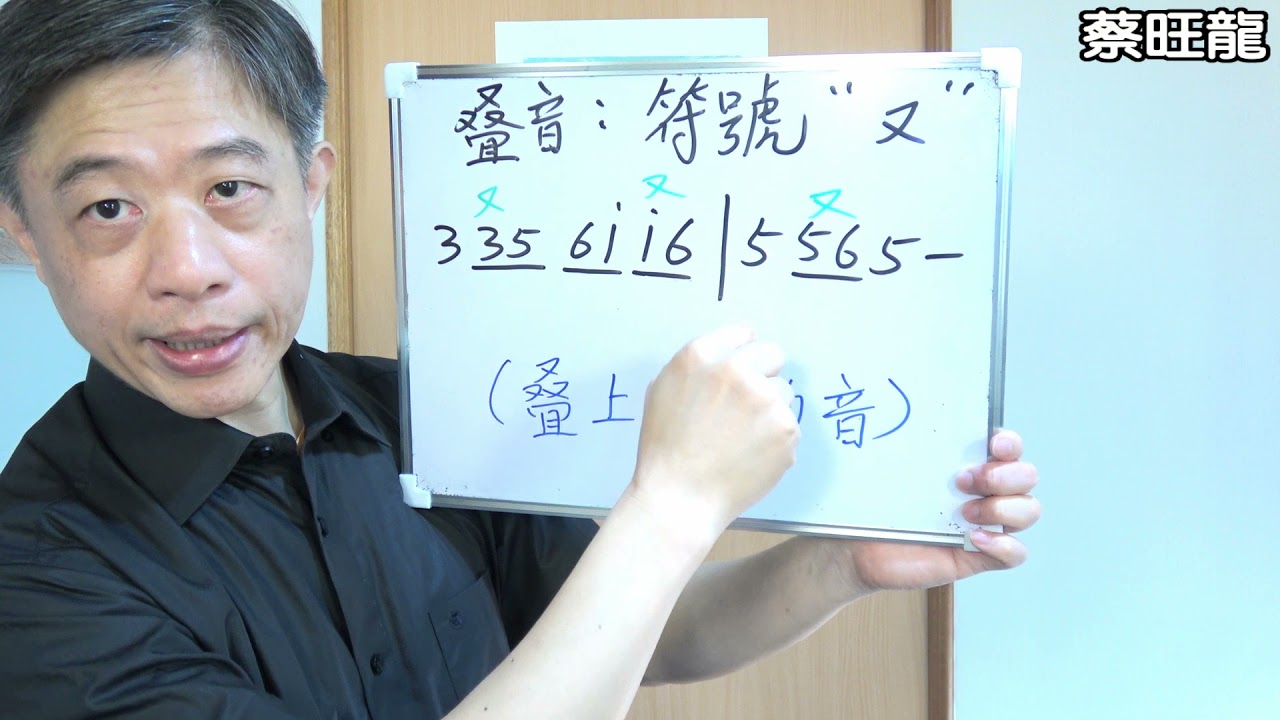 蔡旺龍
叠音：符號“又”
又 又 又
3 35 6i i6 | 5 56 5 —
(叠上 音)